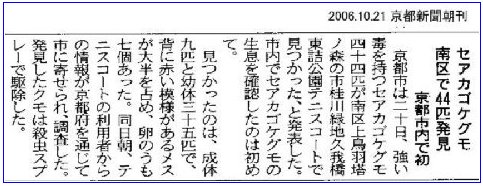 2006.10.21 京都新聞朝刊
セアカゴケグモ
南区で44匹発見
京都市内で初
京都市は二十日、強い
毒を持つセアカゴケグモ
四十四匹が南区上鳥羽塔
ノ森の市桂川緑地久我橋
東詰公園テニスコートで
見つかった、と発表した。
市内でセアカゴケグモの
生息を確認したのは初め
て。
見つかったのは、成体
九匹と幼体三十五匹で、
背に赤い模様があるメス
が大半を占め、卵のうも
七個あった。同日朝、テ
ニスコートの利用者から
の情報が京都府を通じて
市に寄せられ、調査した。
発見したクモは殺虫スプ
レーで駆除した。